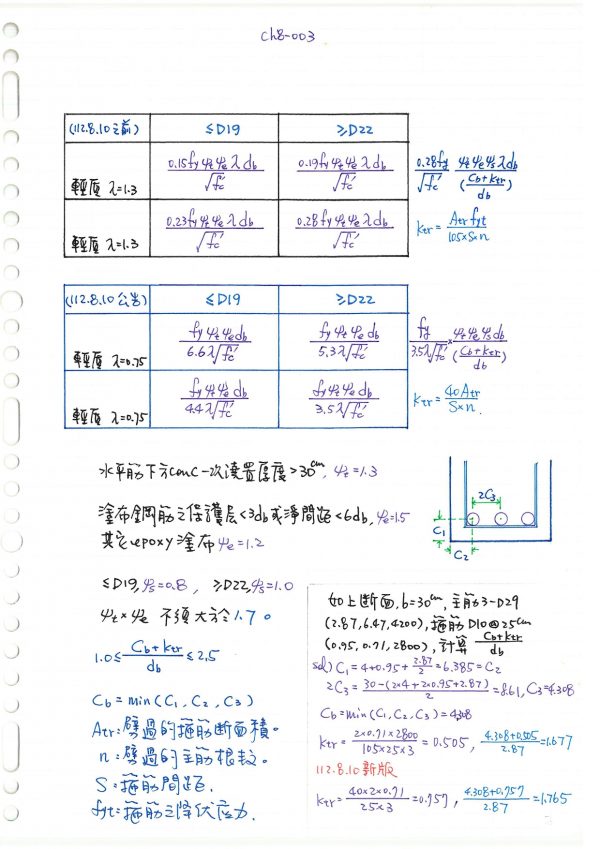 ch8-003
(112.8.10之前) ≤D19 ≥D22
輕質 λ=1.3 0.15fyψtψeλdb/√fc' 0.19fyψtψeλdb/√fc' 0.28fy/√fc' ψtψeψsλdb/((Cb+Ktr)/db)
輕質 λ=1.3 0.23fyψtψeλdb/√fc' 0.28fyψtψeλdb/√fc' Ktr=Atr fyt/(105×S×n)
(112.8.10公告) ≤D19 ≥D22
輕質 λ=0.75 fyψtψedb/(6.6λ√fc') fyψtψedb/(5.3λ√fc') fy/(3.5λ√fc')×ψtψeψsdb/((Cb+Ktr)/db)
輕質 λ=0.75 fyψtψedb/(4.4λ√fc') fyψtψedb/(3.5λ√fc') Ktr=40Atr/(S×n).
水平筋下方conc一次澆置厚度>30cm, ψt=1.3
塗布鋼筋之保護层<3db或淨間距<6db, ψe=1.5
其它epoxy塗布ψe=1.2
2C3
C1
C2
≤D19,ψs=0.8, ≥D22,ψs=1.0
ψt×ψe 不須大於1.7。
1.0≤(Cb+Ktr)/db≤2.5
Cb=min(C1,C2,C3)
Atr:劈過的箍筋断面積。
n:劈過的主筋根数。
S:箍筋間距.
fyt:箍筋之降伏应力.
如上断面,b=30cm,主筋3-D29
(2.87,6.47,4200),箍筋D10@25cm
(0.95,0.71,2800),計算(Cb+Ktr)/db
sol) C1=4+0.95+2.87/2=6.385=C2
2C3=(30-(2×4+2×0.95+2.87))/2=8.61,C3=4.308
Cb=min(C1,C2,C3)=4.308
Ktr=(2×0.71×2800)/(105×25×3)=0.505, (4.308+0.505)/2.87=1.677
112.8.10新版
Ktr=(40×2×0.71)/(25×3)=0.757, (4.308+0.757)/2.87=1.765